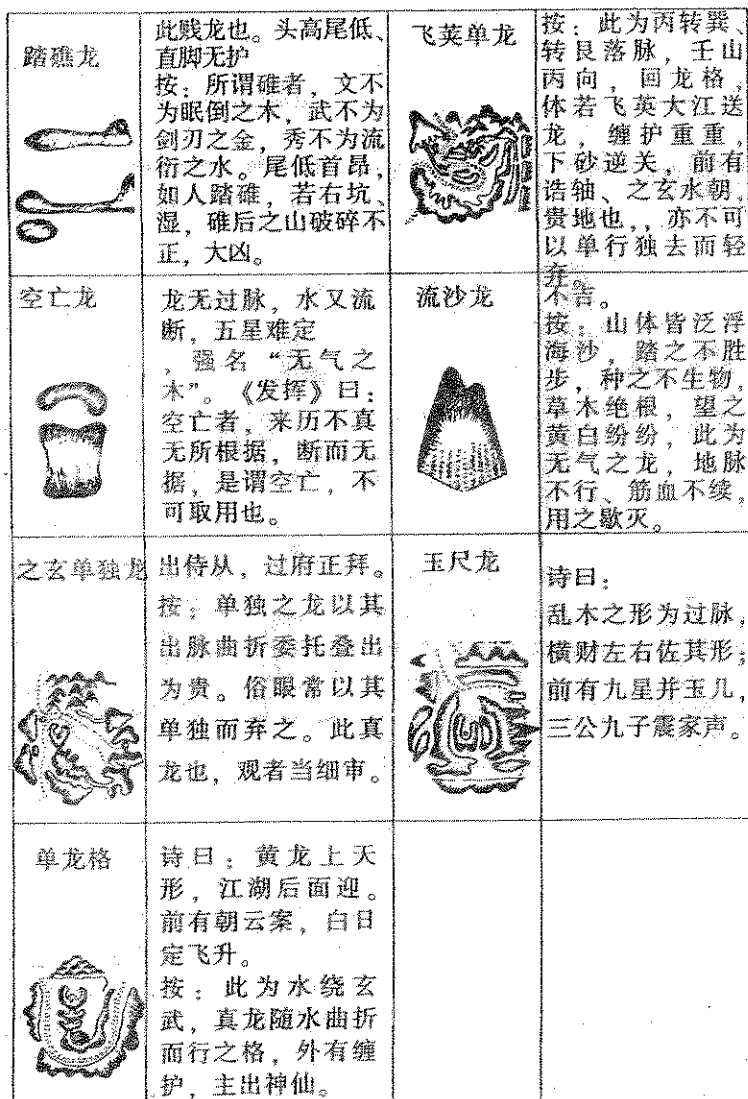 踏礁龙
此贱龙也。头高尾低、
直脚无护
按：所谓碓者，文不
为眠倒之木，武不为
剑刃之金，秀不为流
衍之水。尾低首昂，
如人踏碓，若右坑、
湿，碓后之山破碎不
正，大凶。
飞英单龙
按：此为丙转巽、
转艮落脉，壬山
丙向，回龙格，
体若飞英大江送
龙，缠护重重，
下砂逆关，前有
诰轴、之玄水朝，
贵地也，，亦不可
以单行独去而轻
弃。
空亡龙
龙无过脉，水又流
断，五星难定
，强名“无气之
木”。《发挥》曰：
空亡者，来历不真
无所根据，断而无
据，是谓空亡，不
可取用也。
流沙龙
不吉。
按：山体皆泛浮
海沙，踏之不胜
步，种之不生物，
草木绝根，望之
黄白纷纷，此为
无气之龙，地脉
不行、筋血不续，
用之歇灭。
之玄单独龙
出侍从，过府正拜。
按：单独之龙以其
出脉曲折委托叠出
为贵。俗眼常以其
单独而弃之。此真
龙也，观者当细审。
玉尺龙
诗曰：
乱木之形为过脉，
横财左右佐其形；
前有九星并玉几，
三公九子震家声。
单龙格
诗曰：黄龙上天
形，江湖后面迎。
前有朝云案，白日
定飞升。
按：此为水绕玄
武，真龙随水曲折
而行之格，外有缠
护，主出神仙。